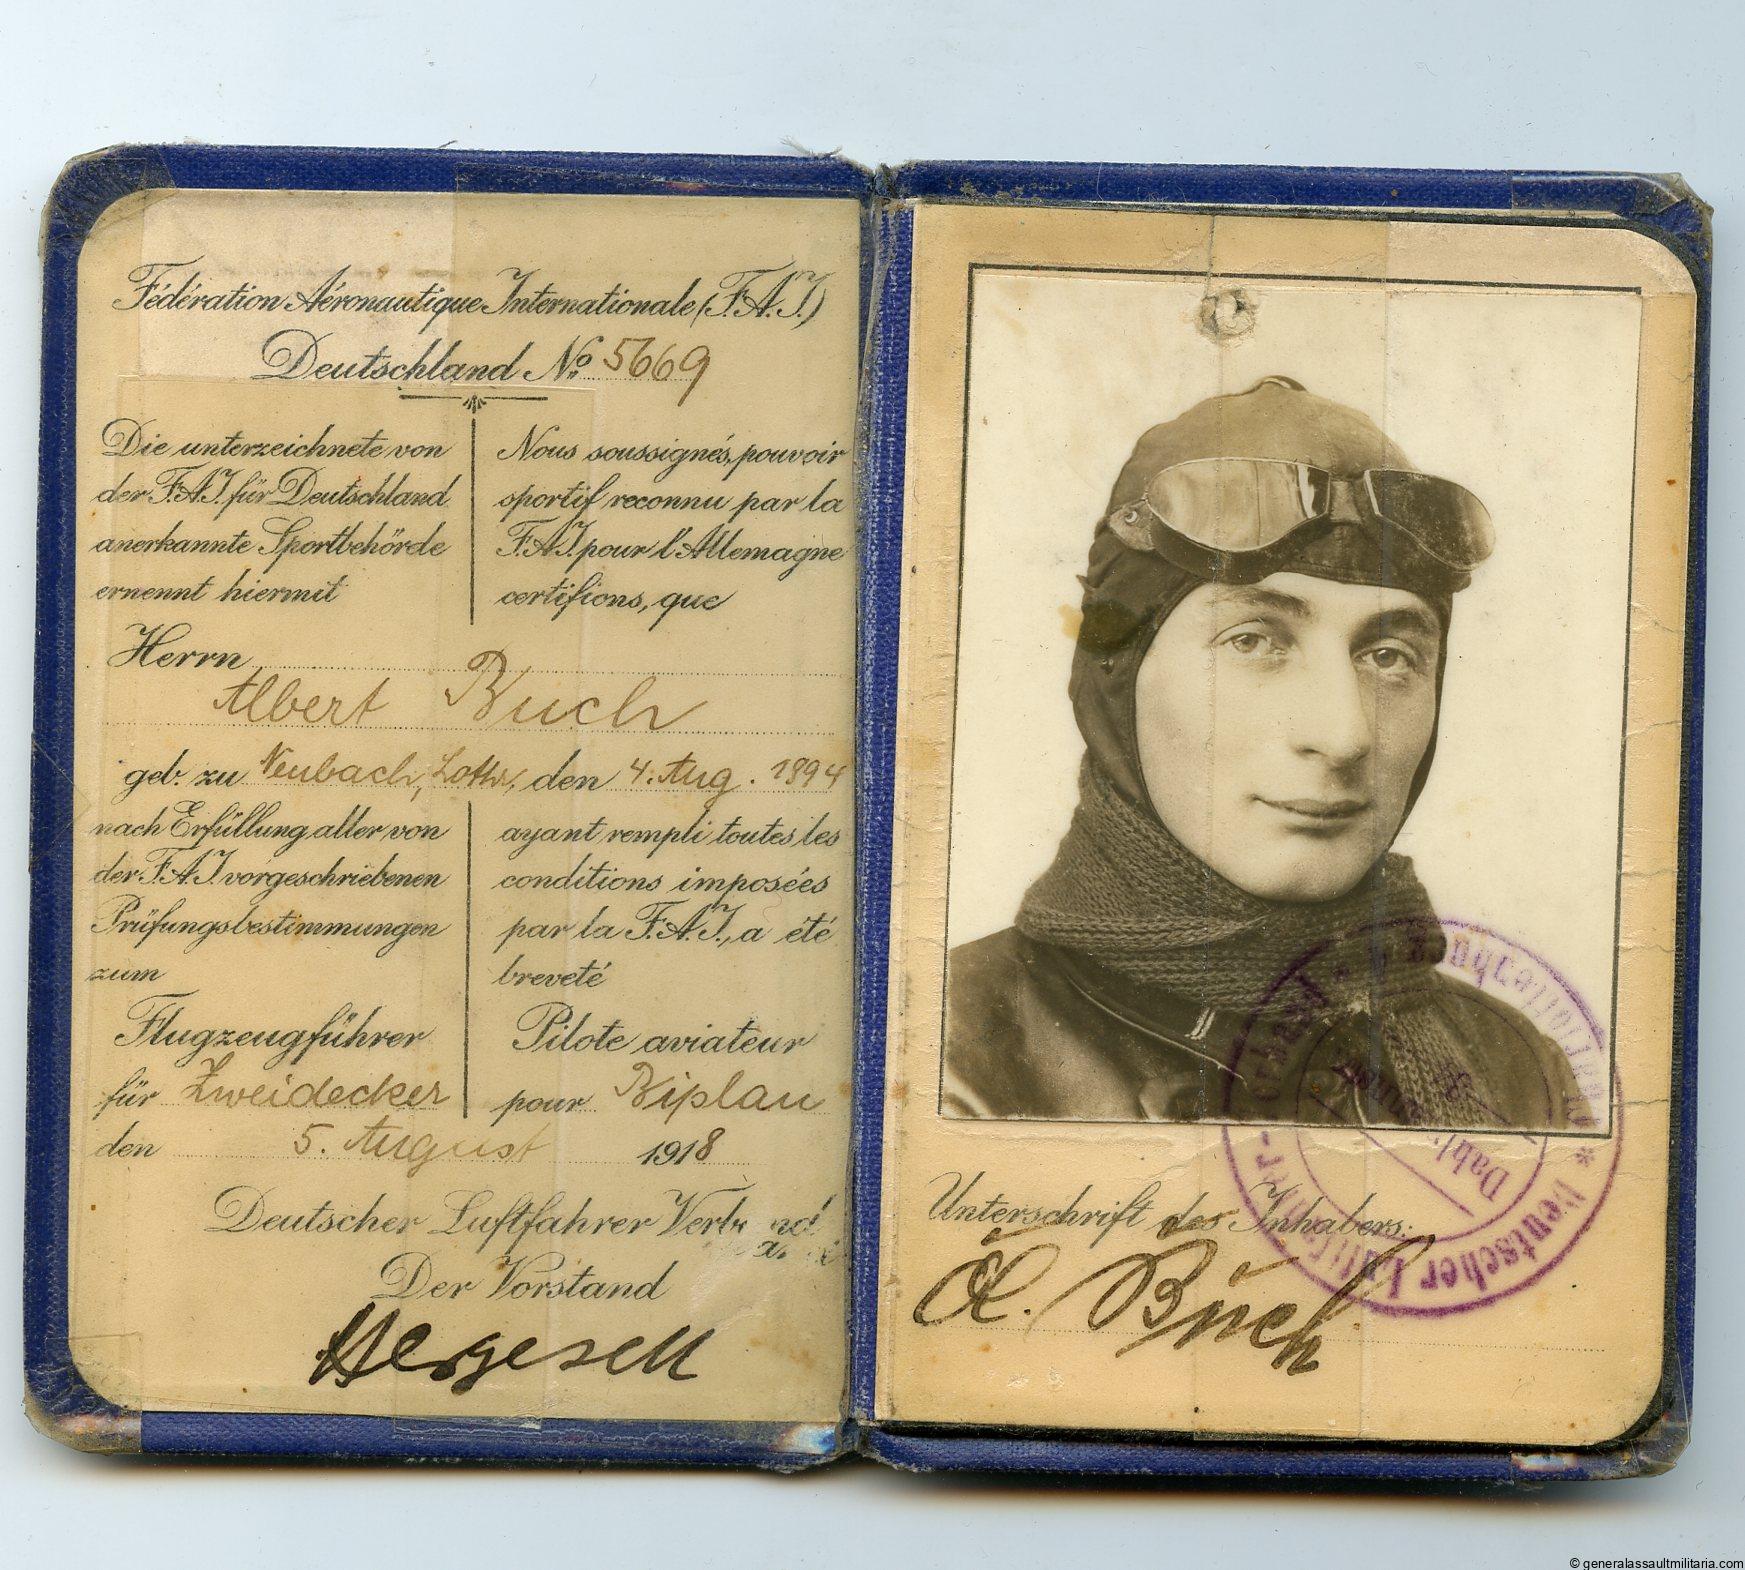 Fédération Aéronautique Internationale (F.A.I.)
Deutschland No. 5669
Die unterzeichnete von
der F.A.I. für Deutschland
anerkannte Sportbehörde
ernennt hiermit
Nous soussignés, pouvoir
sportif reconnu par la
F.A.I. pour l'Allemagne
certifions, que
Herrn
Albert Buch
geb. zu Neubach, Lothr, den 4. Aug. 1894
nach Erfüllung aller von
der F.A.I. vorgeschriebenen
Prüfungsbestimmungen
zum
Flugzeugführer
für Zweidecker
ayant rempli toutes les
conditions imposées
par la F.A.I., a été
breveté
Pilote aviateur
pour Biplan
den 5. August 1918
Deutscher Luftfahrer Verband
Der Vorstand
Hergesell
Unterschrift des Inhabers:
A. Buch
* Deutscher Luftfahrer-Verband *
© generalassaultmilitaria.com